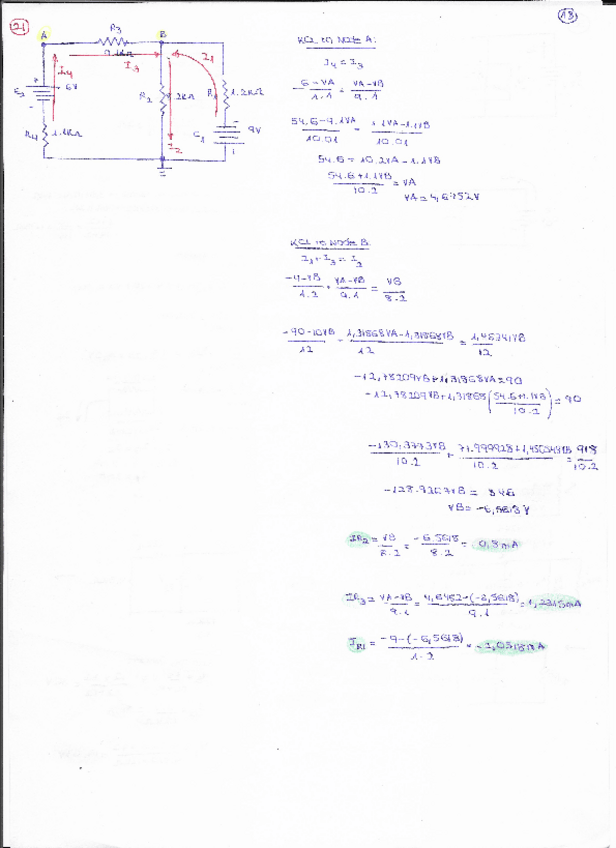 21
13
A
R3
B
9.1KΩ
I3
I1
I4
6V
R2
1.2KΩ
R4
1.1KΩ
9V
I2
KCL to Node A:
I4 = I3
6-VA / 1.1 = VA-VB / 9.1
54.6-9.1VA / 10.01 = 1.1VA-1.1VB / 10.01
54.6 = 10.2VA-1.1VB
54.6+1.1VB / 10.2 = VA
VA = 4,6452V
KCL to Node B:
I1+I3 = I2
-9-VB / 1.2 + VA-VB / 9.1 = VB / 8.2
-90-10VB / 12 1,31868VA-1,31868VB / 12 = 1,46341VB / 12
-12,78209VB+1,31868VA=90
-12,78209VB+1,31868(54.6+1.1VB / 10.2) = 90
-130,3773VB / 10.2 + 71.999928+1,450548VB / 10.2 = 918 / 10.2
-128.9267VB = 846
VB = -6,5618V
IR2 = VB / 8.2 = -6,5618 / 8.2 = 0,8mA
IR3 = VA-VB / 9.1 = 1,2315mA
IR1 = -9-(-6,5618) / 1.2 = -2,0318mA